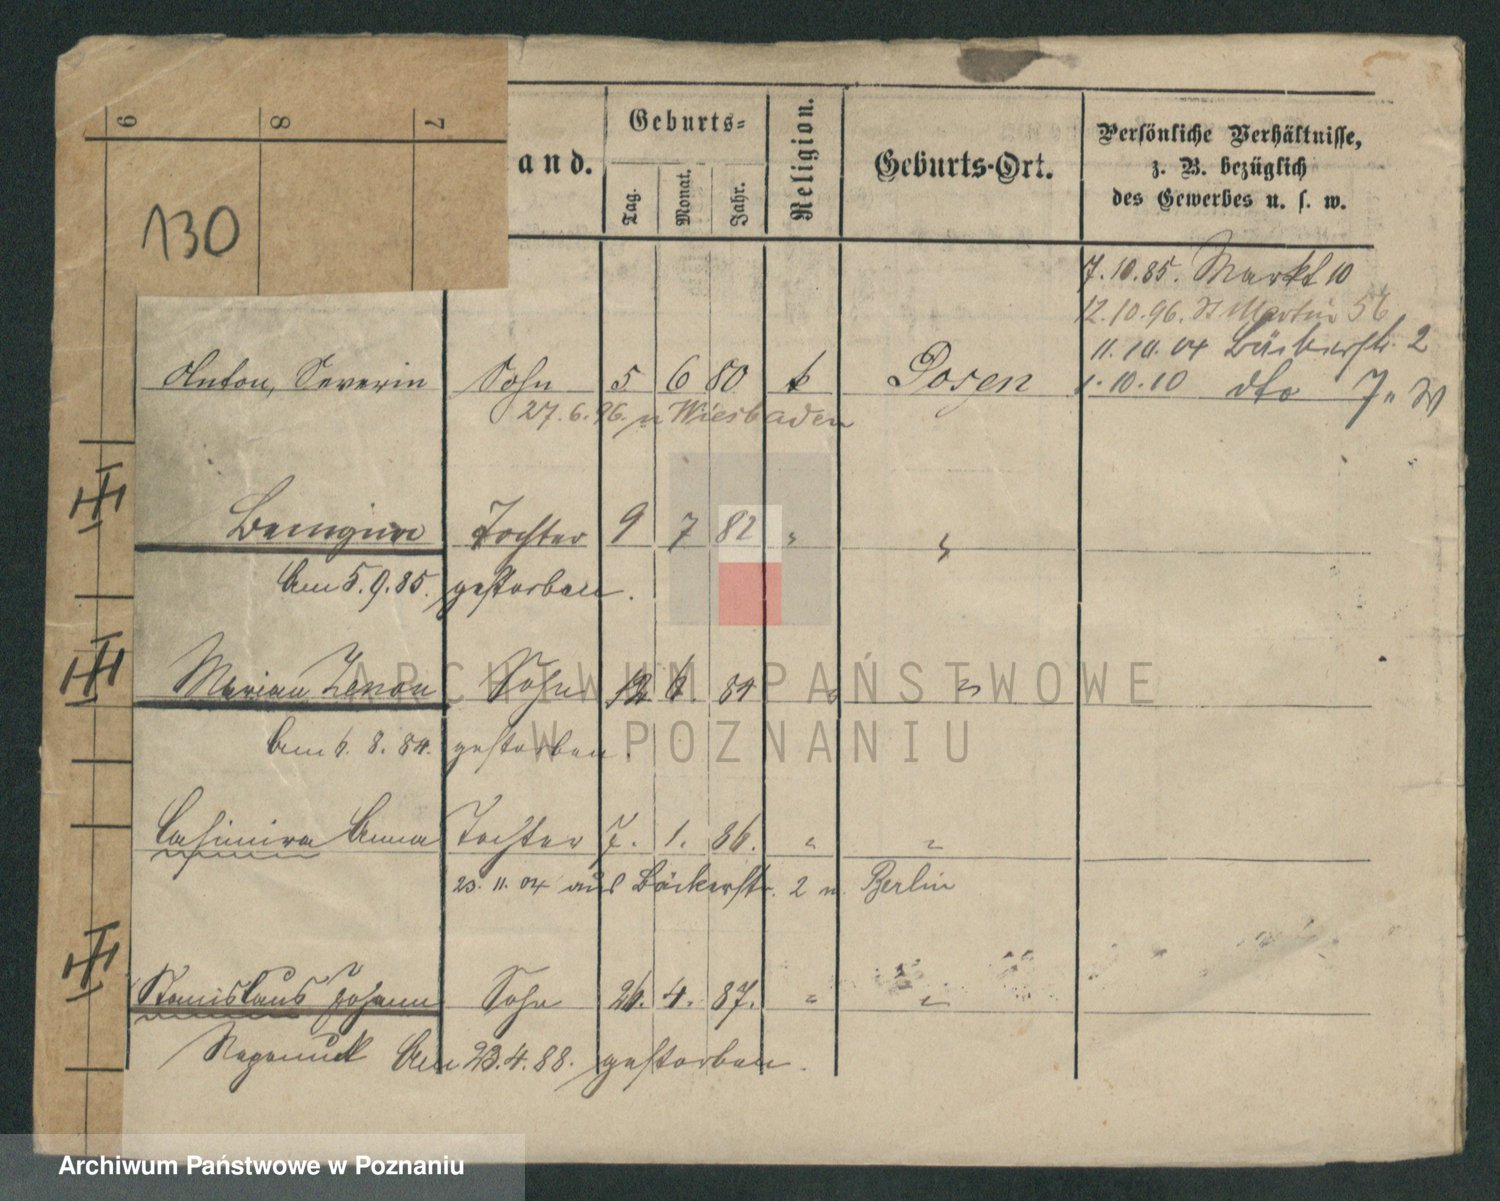 9 8 7
130
and.
Geburts=
Tag.
Monat.
Jahr.
Religion.
Geburts-Ort.
Persönliche Verhältnisse,
z. B. bezüglich
des Gewerbes u. s. w.
7.10.85. Markt 10
12.10.96. St Martin 56
11.10.04 Bäckerstr. 2
1.10.10 dto 7 " W
Anton, Severin Sohn 5 6 80 k Posen
27.6.96. n Wiesbaden
Benigna Tochter 9 7 82 " "
Am 5.9.85. gestorben.
Marian Zenon Sohn 12 6 84 " "
Am 6. 8. 84. gestorben.
Casimira Anna Tochter 7. 1. 86. " "
23.11.04 aus Bäckerstr. 2 n. Berlin
Stanislaus Johann Sohn 26. 4. 87. " "
Nepomuk Am 23.4.88. gestorben.
ARCHIWUM PAŃSTWOWE
W POZNANIU
Archiwum Państwowe w Poznaniu